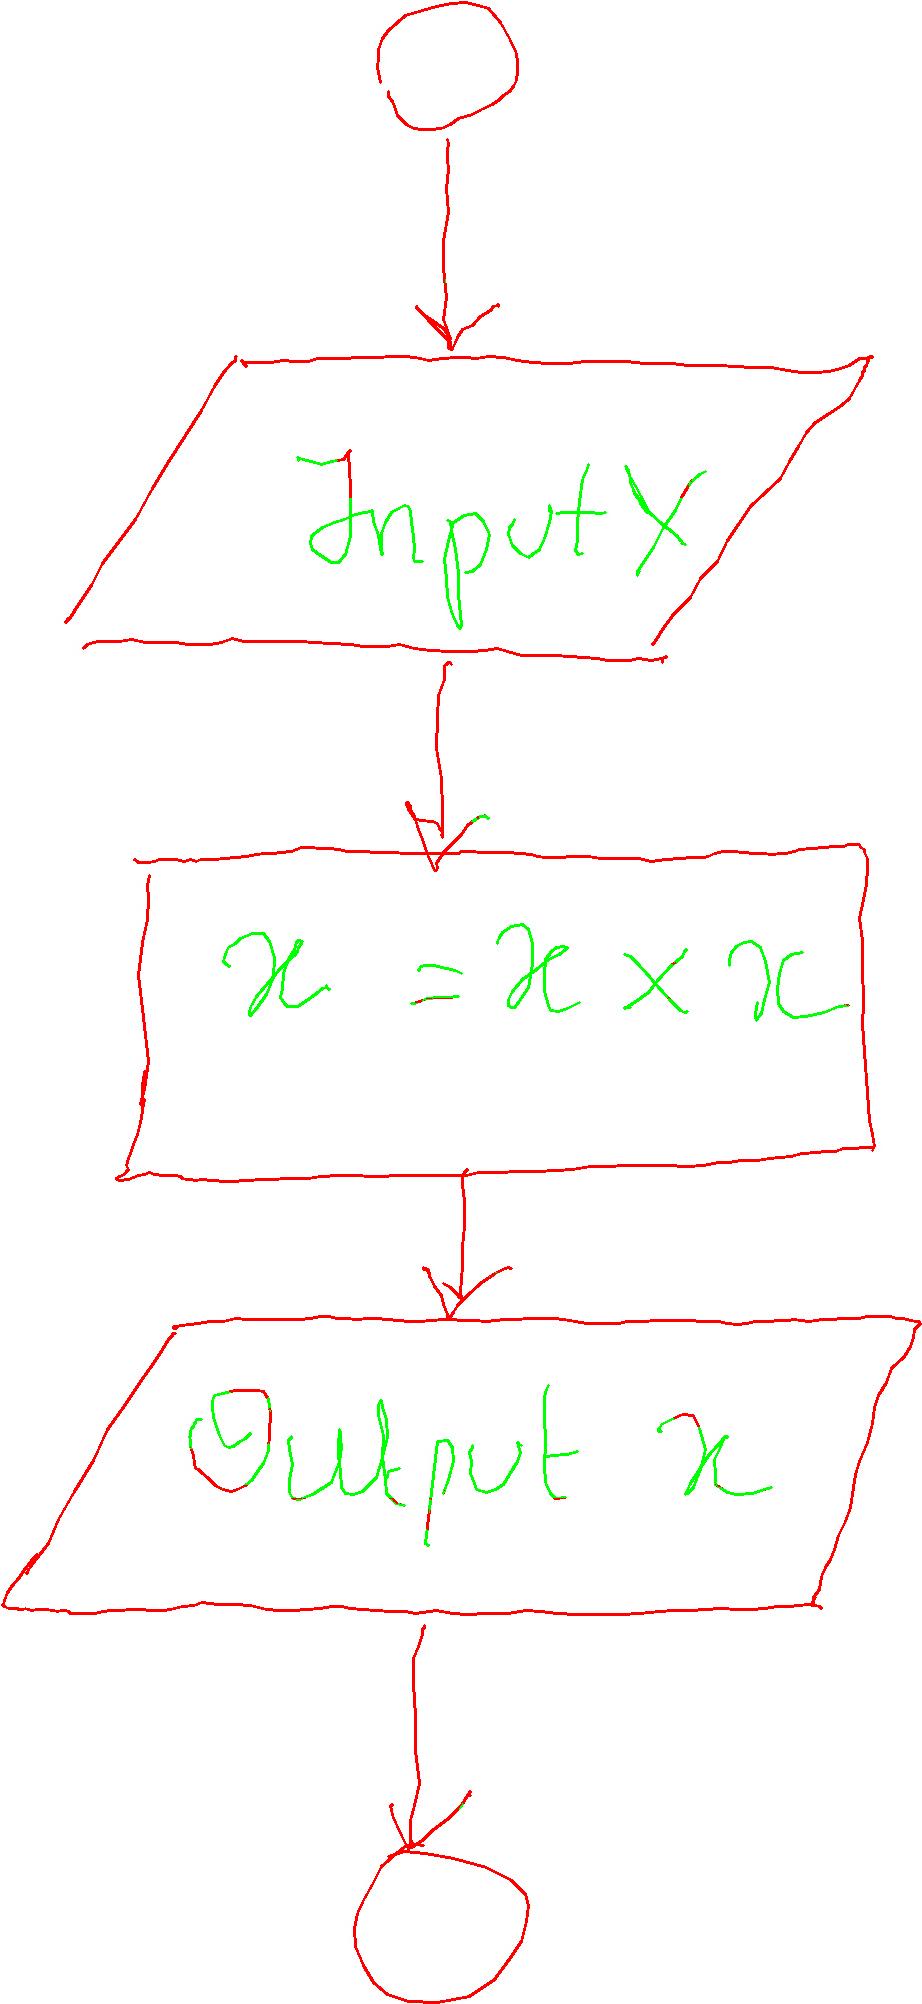 Input X
x = x × x
Output x